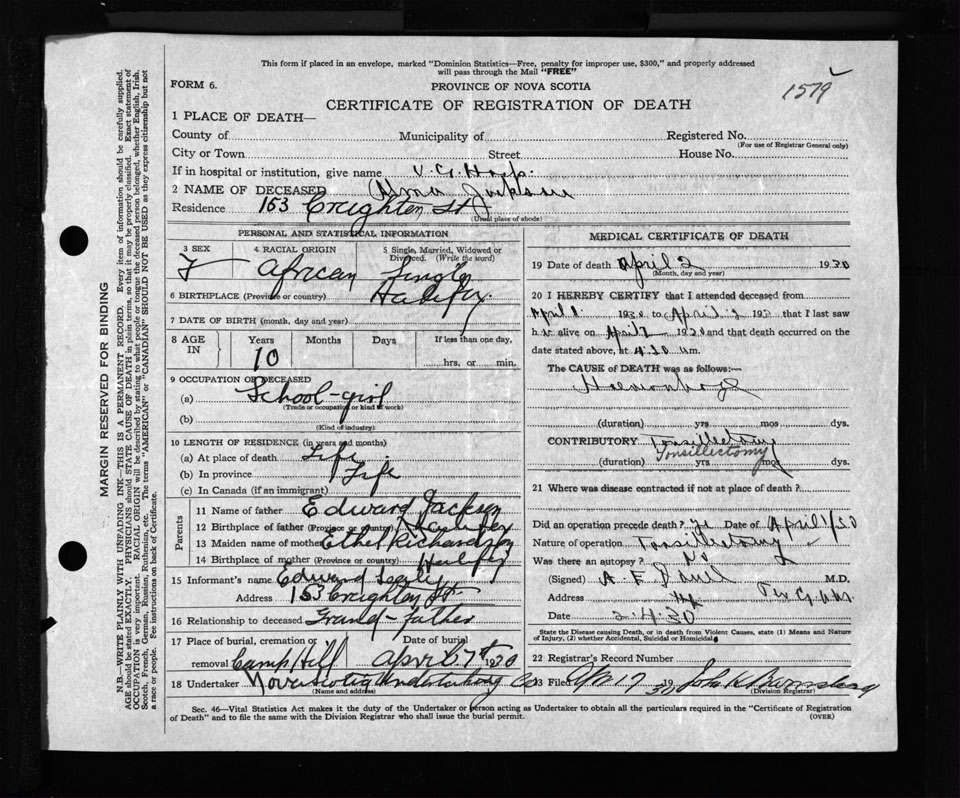 This form if placed in an envelope, marked "Dominion Statistics—Free, penalty for improper use, $300," and properly addressed
will pass through the Mail "FREE"
FORM 6.
PROVINCE OF NOVA SCOTIA
1579
CERTIFICATE OF REGISTRATION OF DEATH
1 PLACE OF DEATH—
County of Municipality of Registered No.
(For use of Registrar General only)
City or Town Street House No.
If in hospital or institution, give name V. G. Hosp.
2 NAME OF DECEASED Alma Jackson
Residence 153 Creighton St
(Usual place of abode)
PERSONAL AND STATISTICAL INFORMATION
3 SEX 4 RACIAL ORIGIN 5 Single, Married, Widowed or Divorced. (Write the word)
F African Single
6 BIRTHPLACE (Province or country) Halifax
7 DATE OF BIRTH (month, day and year)
8 AGE IN Years Months Days If less than one day,
10 hrs. or min.
9 OCCUPATION OF DECEASED
(a) School-girl
(Trade or occupation or kind of work)
(b)
(Kind of industry)
10 LENGTH OF RESIDENCE (in years and months)
(a) At place of death Life
(b) In province Life
(c) In Canada (if an immigrant)
Parents
11 Name of father Edward Jackson
12 Birthplace of father (Province or country) Halifax
13 Maiden name of mother Ethel Richardson
14 Birthplace of mother (Province or country) Halifax
15 Informant's name Edward
Address 153 Creighton St
16 Relationship to deceased Grand-father
17 Place of burial, cremation or removal Camp Hill Date of burial April 7th 1930
18 Undertaker Nova Scotia Undertaking Co
(Name and address)
MEDICAL CERTIFICATE OF DEATH
19 Date of death April 2 1930
(Month, day and year)
20 I HEREBY CERTIFY that I attended deceased from
April 1 1930 to April 2 193 that I last saw
h er alive on April 2 1930 and that death occurred on
date stated above, at 4.20 m.
The CAUSE of DEATH was as follows:—
Haemorrhage
(duration) yrs. mos. dys.
CONTRIBUTORY Tonsillectomy
Tonsillectomy
(duration) yrs. mos. dys.
21 Where was disease contracted if not at place of death?
Did an operation precede death? yes Date of April 1/30
Nature of operation Tonsillectomy
Was there an autopsy? No
(Signed) A. E. M.D.
Address
Date 2.4.30
State the Disease causing Death, or in death from Violent Causes, state (1) Means and Nature
of Injury, (2) whether Accidental, Suicidal or Homicidal.
22 Registrar's Record Number
23 Filed Apr 17 1930 John
(Division Registrar)
Sec. 46—Vital Statistics Act makes it the duty of the Undertaker or person acting as Undertaker to obtain all the particulars required in the "Certificate of Registration
of Death" and to file the same with the Division Registrar who shall issue the burial permit.
(OVER)
MARGIN RESERVED FOR BINDING
N.B.—WRITE PLAINLY WITH UNFADING INK—THIS IS A PERMANENT RECORD. Every item of information should be carefully supplied.
AGE should be stated EXACTLY. PHYSICIANS should STATE CAUSE OF DEATH in plain terms, so that it may be properly classified. Exact statement of
OCCUPATION is very important. RACIAL ORIGIN will be described by stating to what people or tongue the deceased person belonged, whether English, Irish,
Scotch, French, German, Russian, Ruthenian, etc. The terms "AMERICAN" or "CANADIAN" SHOULD NOT BE USED as they express citizenship but not
a race or people. Fee instructions on back of Certificate.